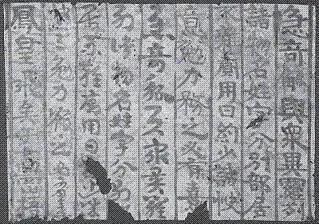 急奇觚與衆異羅列
諸物名姓字分別部居
不雜廁用日約少誠快
意勉力務之必有憙
急奇觚与衆異羅
列諸物名姓字分別
居不雜廁用日少
意勉力務之必
鳳皇飛矣